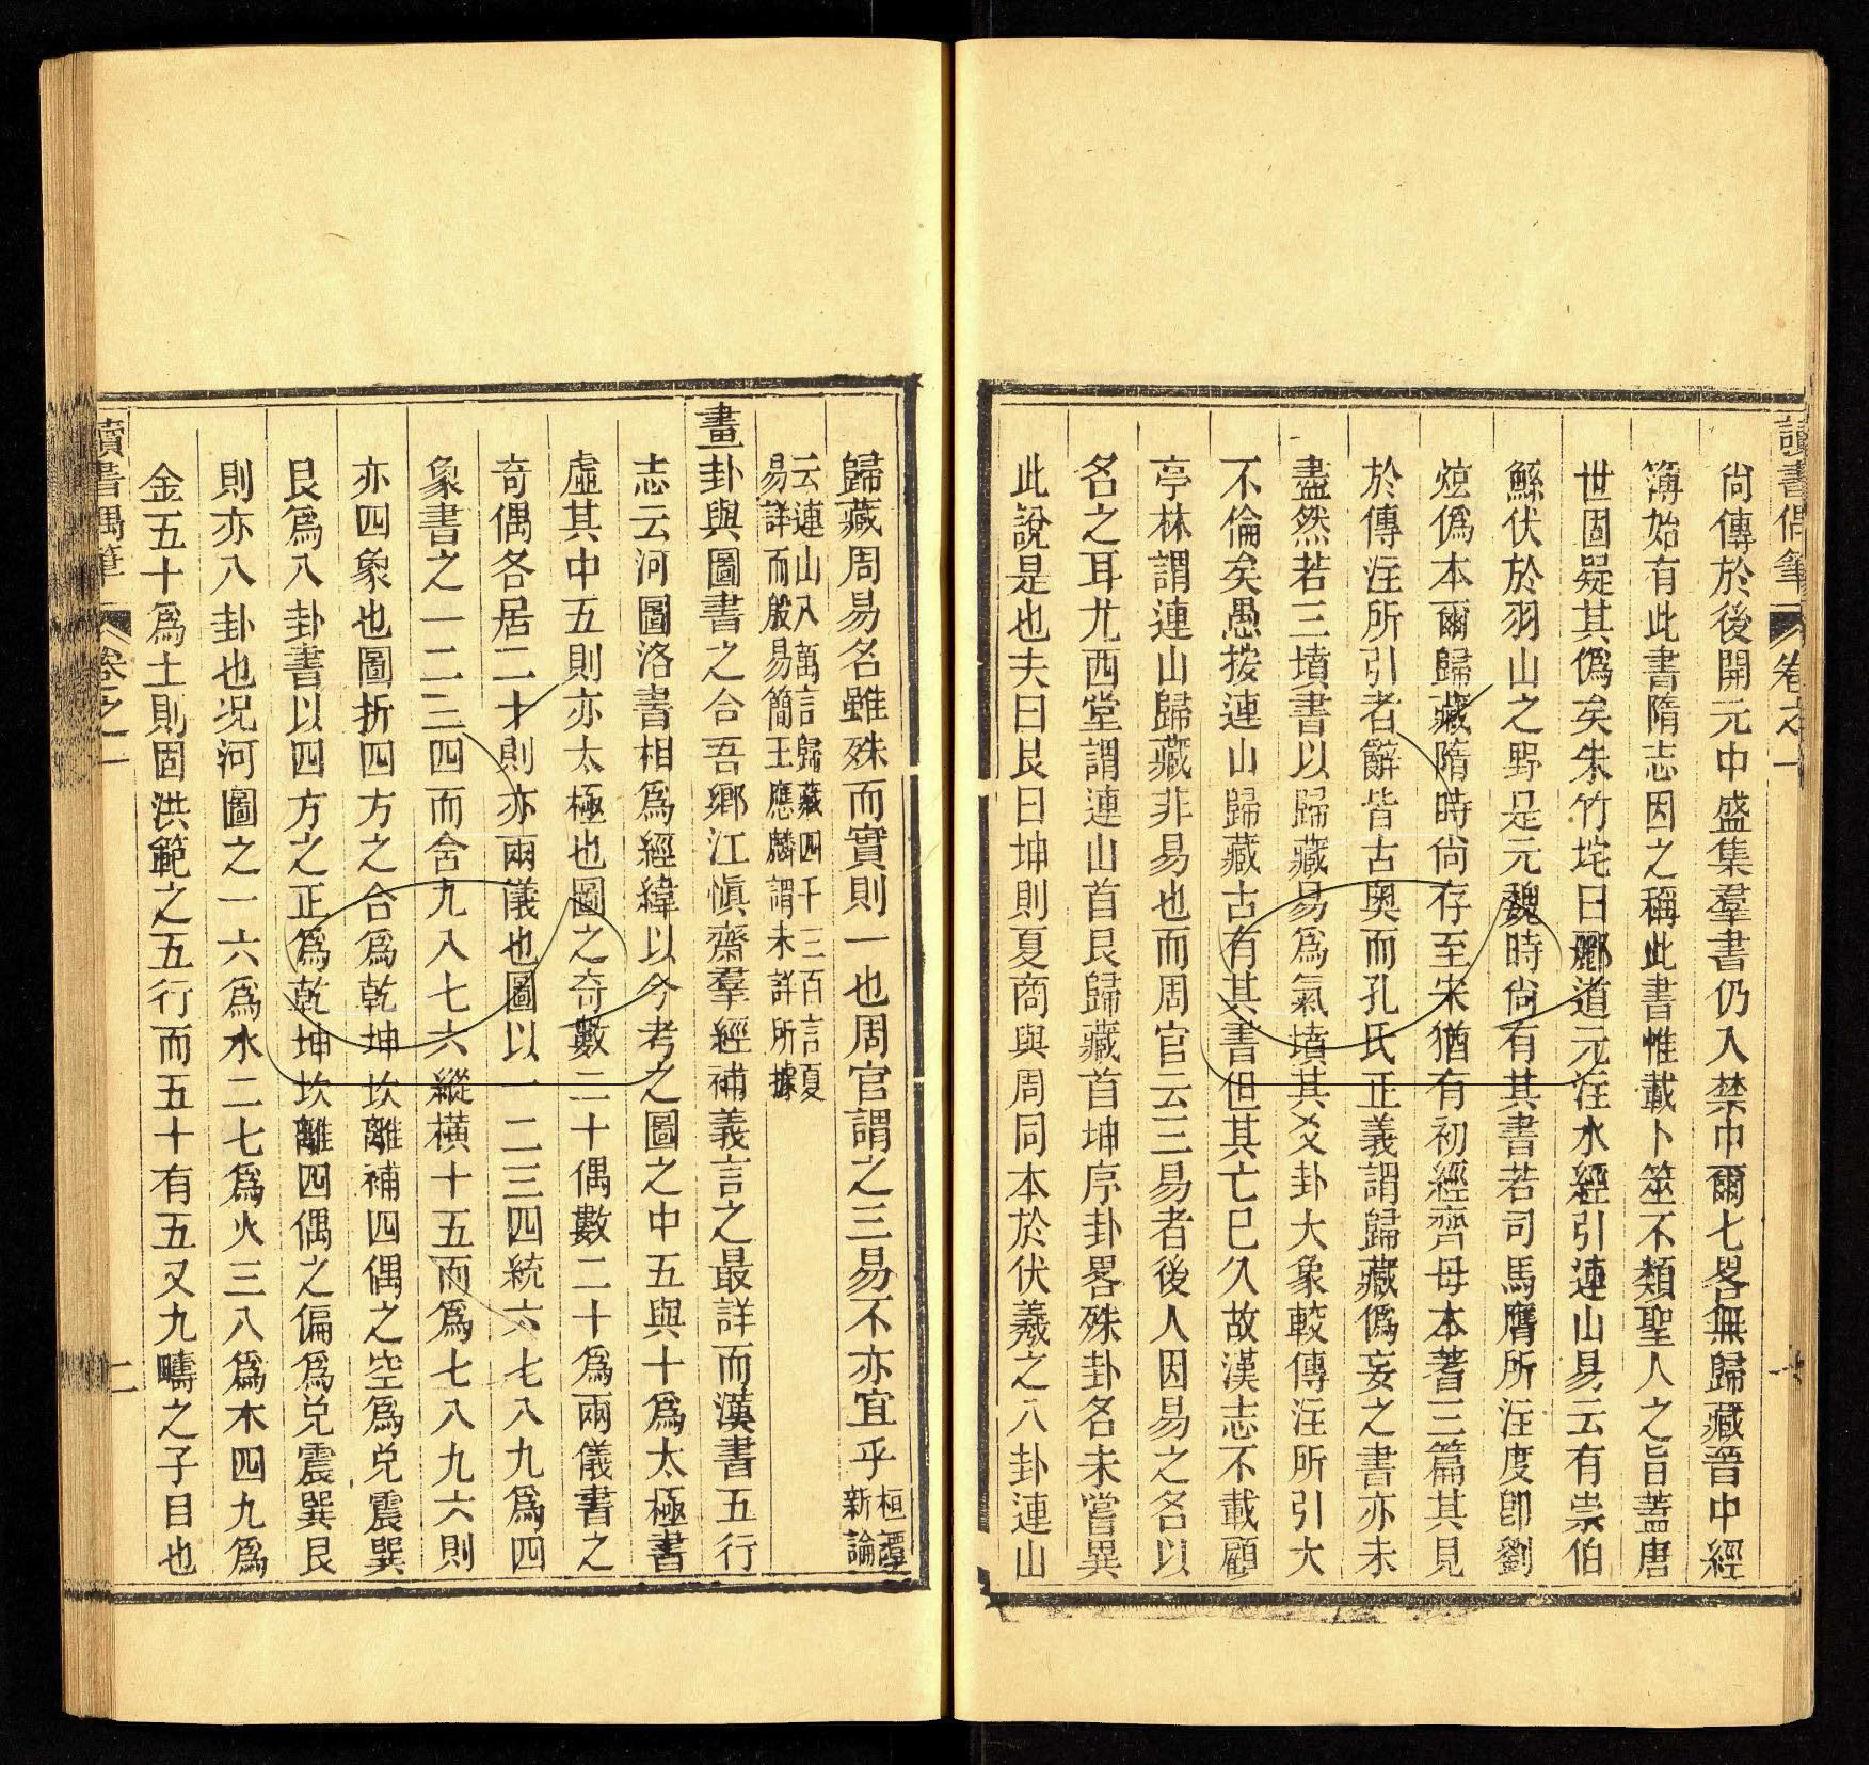 讀書偶筆 卷之一
尚傳於後開元中盛集羣書仍入禁中爾七畧無歸藏晉中經
簿始有此書隋志因之稱此書惟載卜筮不類聖人之旨蓋唐
世固疑其僞矣朱竹垞曰酈道元注水經引連山易云有崇伯
鯀伏於羽山之野是元魏時尚有其書若司馬膺所注度卽劉
炫僞本爾歸藏隋時尚存至宋猶有初經齊母本蓍三篇其見
於傳注所引者辭皆古奧而孔氏正義謂歸藏僞妄之書亦未
盡然若三墳書以歸藏易爲氣墳其爻卦大象較傳注所引大
不倫矣愚按連山歸藏古有其書但其亡巳久故漢志不載顧
亭林謂連山歸藏非易也而周官云三易者後人因易之名以
名之耳尤西堂謂連山首艮歸藏首坤序卦畧殊卦名未嘗異
此說是也夫曰艮曰坤則夏商與周同本於伏羲之八卦連山
歸藏周易名雖殊而實則一也周官謂之三易不亦宜乎桓譚新論
云連山八萬言歸藏四千三百言夏
易詳而殷易簡王應麟謂未詳所據
畫卦與圖書之合吾鄉江愼齋羣經補義言之最詳而漢書五行
志云河圖洛書相爲經緯以今考之圖之中五與十爲太極書
虛其中五則亦太極也圖之奇數二十偶數二十爲兩儀書之
奇偶各居二十則亦兩儀也圖以一二三四統六七八九爲四
象書之一二三四而含九八七六縱橫十五而爲七八九六則
亦四象也圖折四方之合爲乾坤坎離補四偶之空爲兌震巽
艮爲八卦書以四方之正爲乾坤坎離四偶之偏爲兌震巽艮
則亦八卦也况河圖之一六爲水二七爲火三八爲木四九爲
金五十爲土則固洪範之五行而五十有五又九疇之子目也
讀書偶筆 卷之一 二